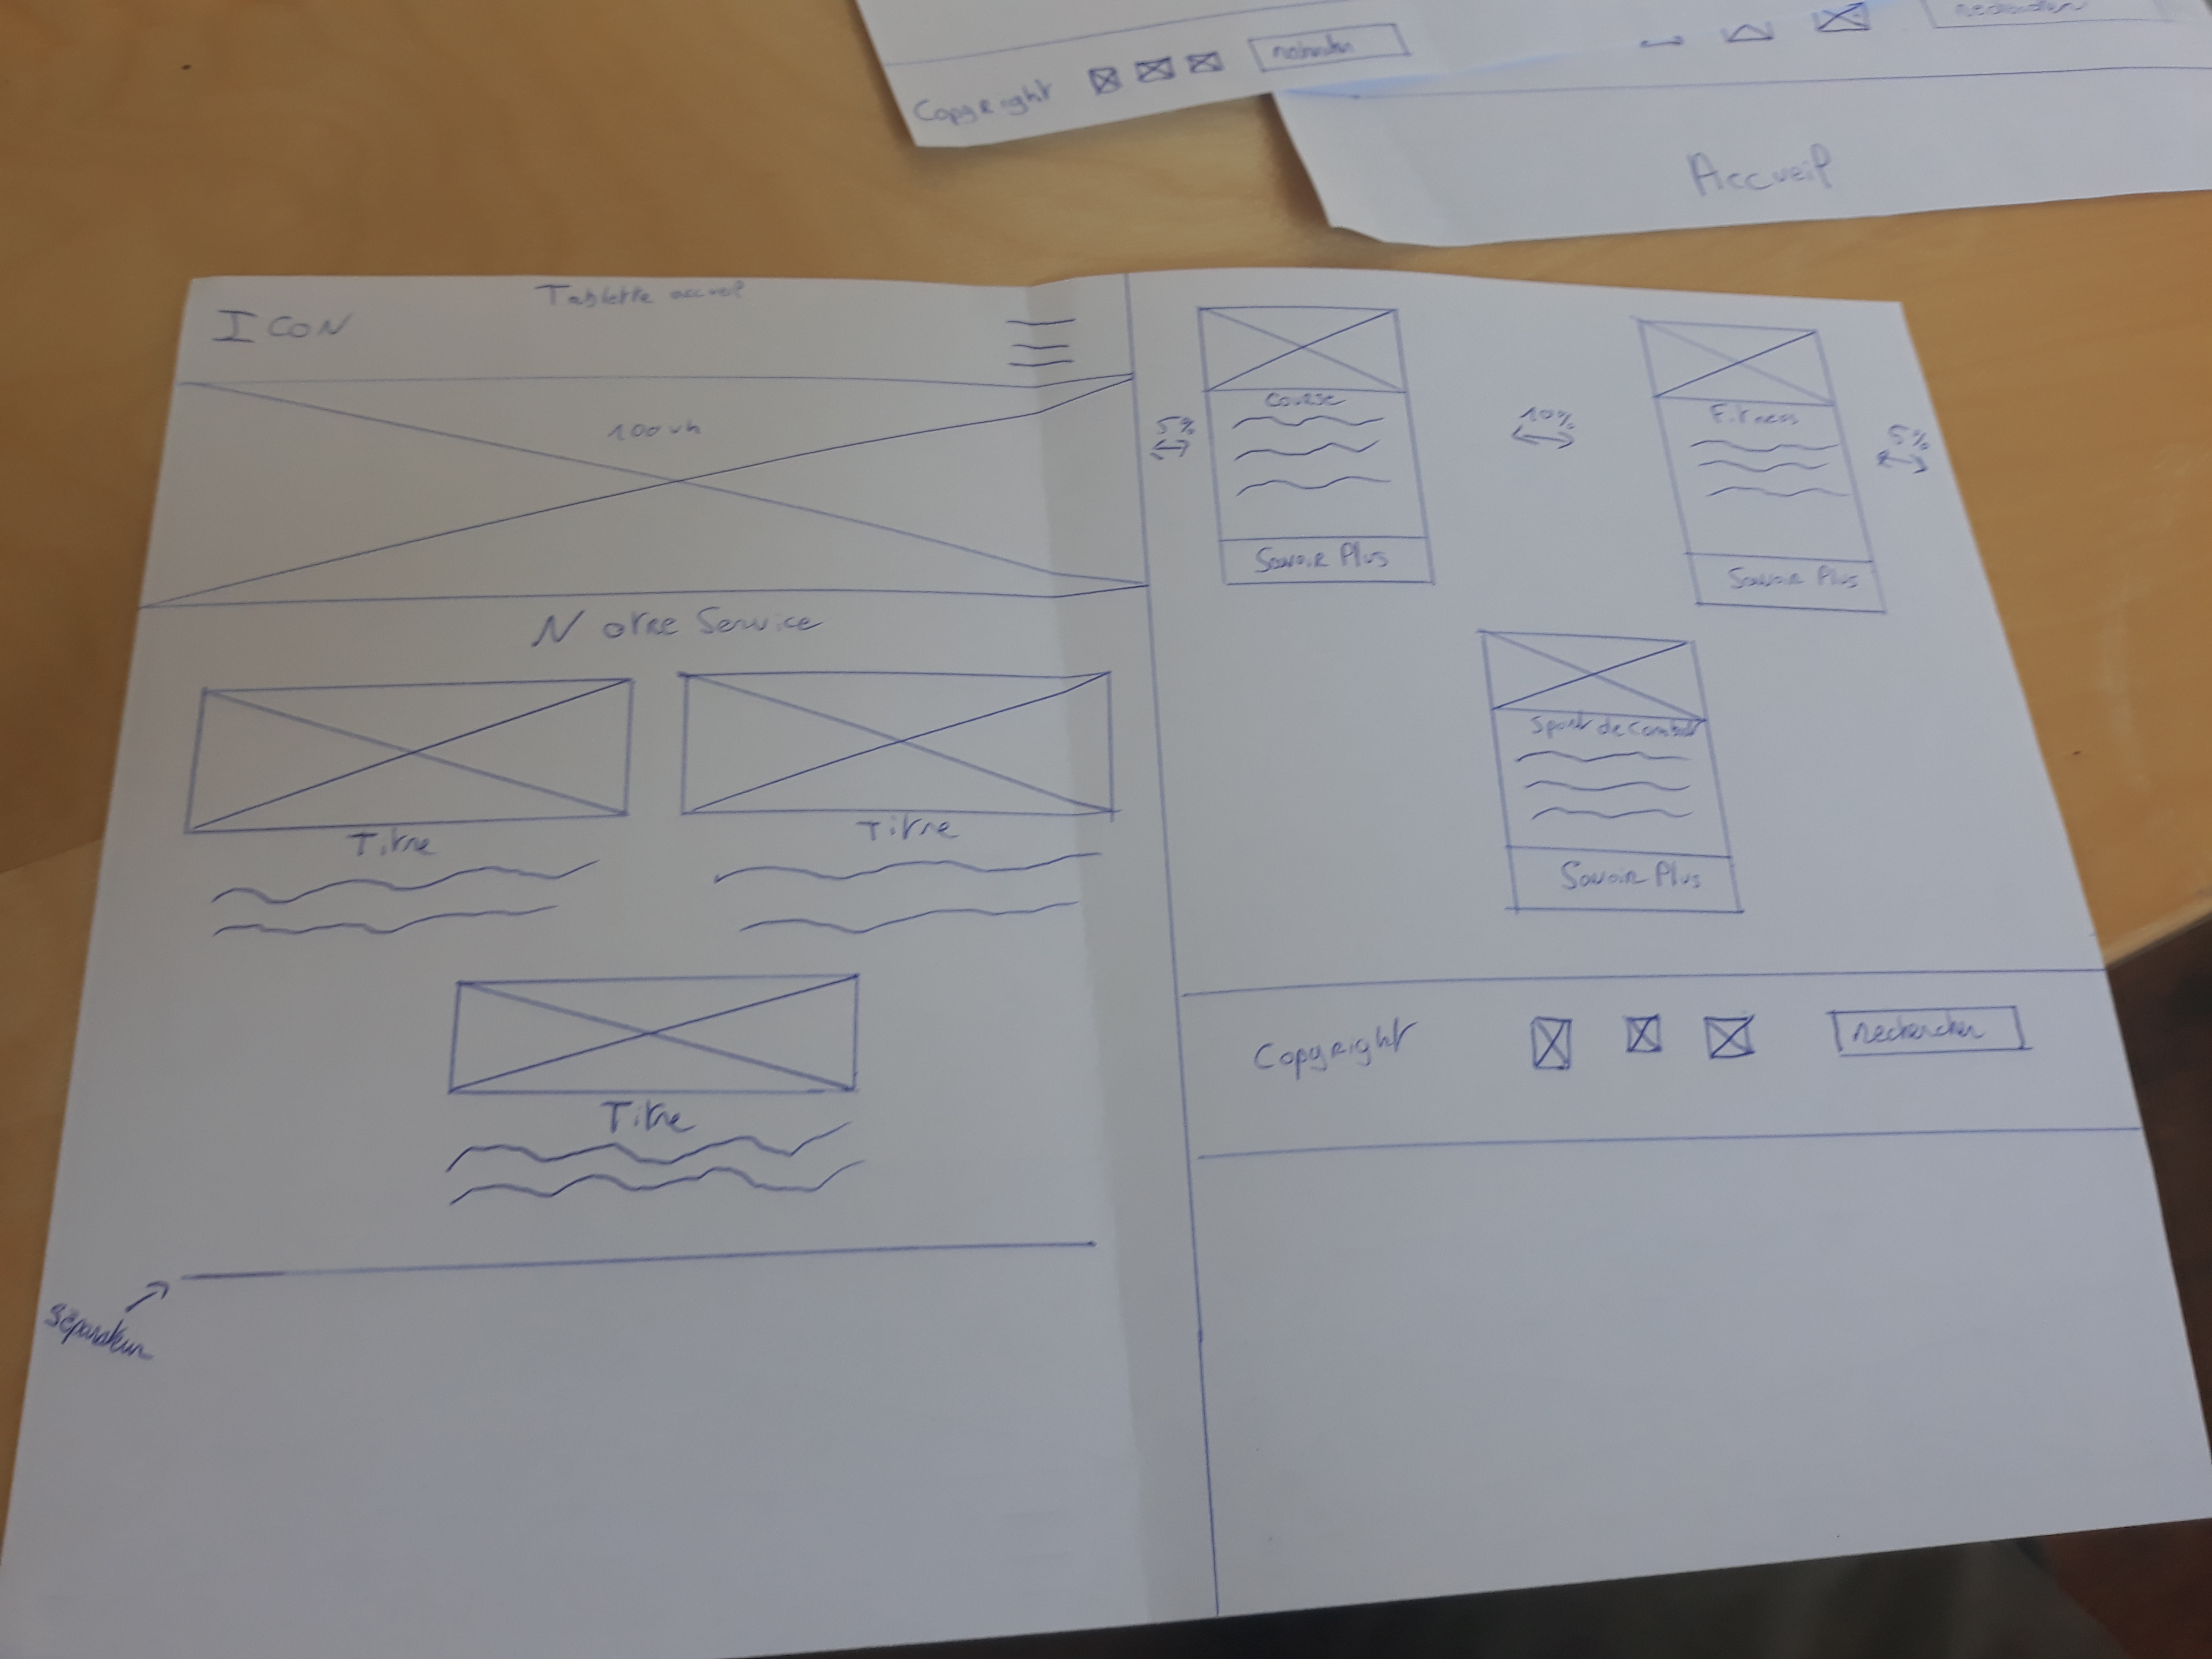 Copyright rechercher
Accueil
Tablette accueil
ICON
100vh
Notre Service
Titre Titre
Titre
Séparateur
Course
5% 10% Fitness 5%
Savoir Plus Savoir Plus
Sport de combat
Savoir Plus
Copyright rechercher